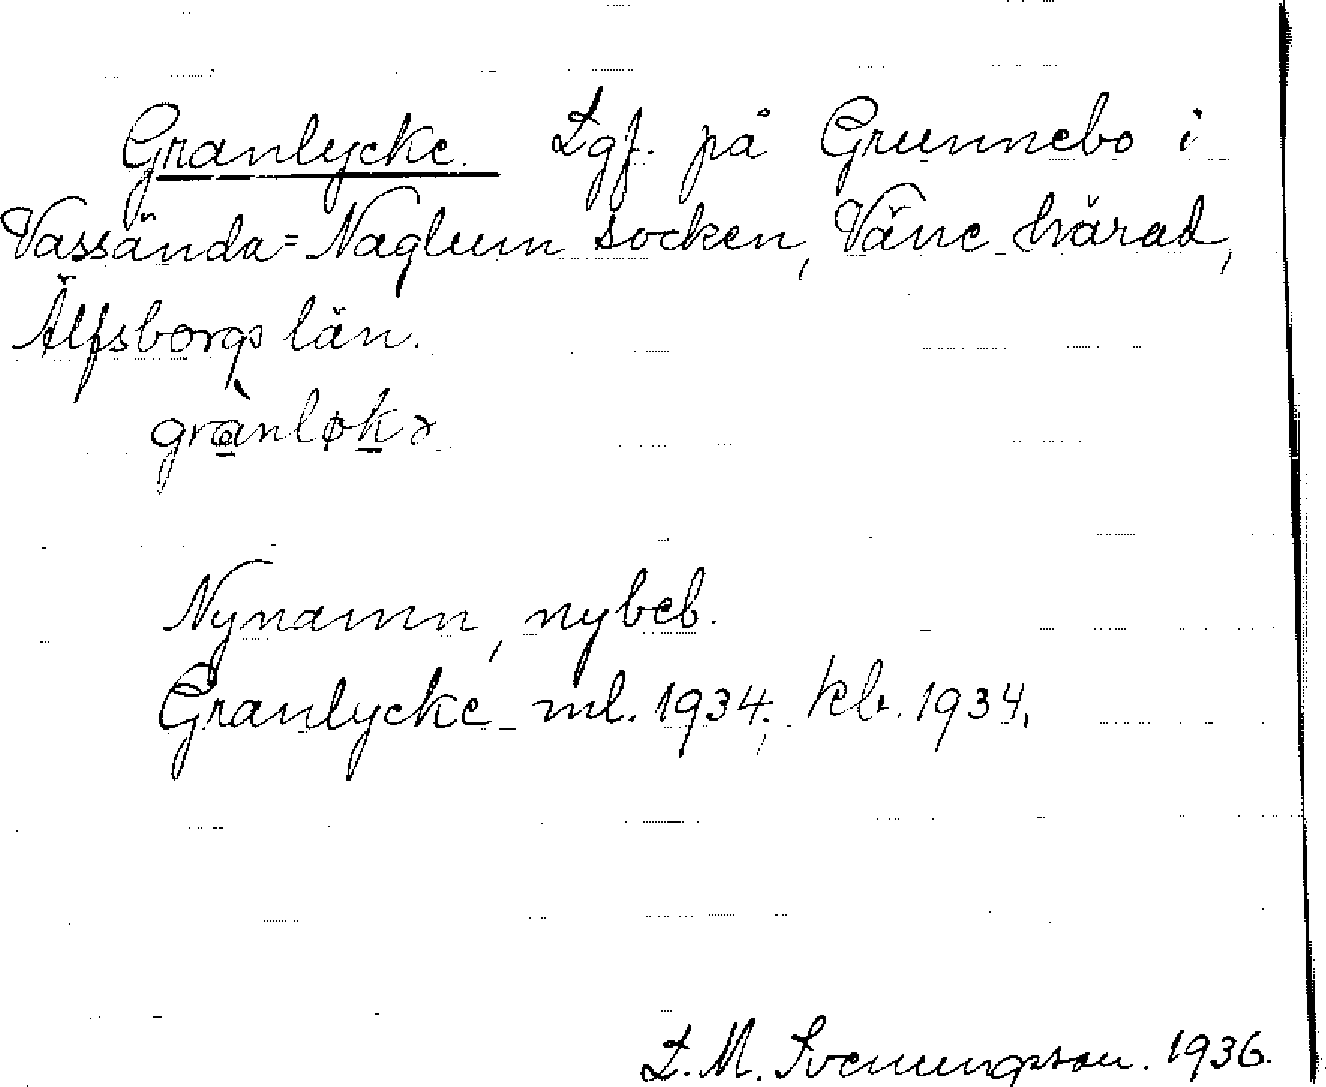 Granlycke. Lgf. på Grunnebo i
Vassända=Naglum socken, Väne härad,
Älfsborgs län.
grànløkə
Nynamn, nybeb.
Granlycke ml. 1934; kb. 1934.
L. M. Svenungsson. 1936.